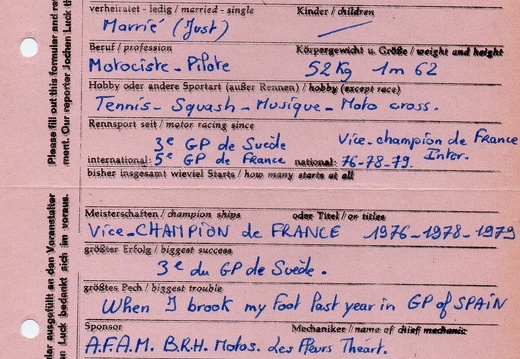 verheiratet - ledig / married - single Kinder / children
Marrié (Just)
Beruf / profession Körpergewicht u. Größe / weight and height
Motociste - Pilote 52 Kg 1m 62
Hobby oder andere Sportart (außer Rennen) / hobby (except race)
Tennis - Squash - Musique - Moto cross.
Rennsport seit / motor racing since
3e GP de Suède Vice-champion de France
international: 5e GP de France national: 76-78-79 Inter.
bisher insgesamt wieviel Starts / how many starts at all
Meisterschaften / champion ships oder Titel / or titles
Vice-CHAMPION de FRANCE 1976-1978-1979
größter Erfolg / biggest success
3e du GP de Suède.
größtes Pech / biggest trouble
When I brook my foot last year in GP of SPAIN
Sponsor Mechaniker / name of chief mechanic
A.F.A.M. B.R.H. Motos. Les Fleurs Théart.
Please fill out this formular and re
ment. Our reporter Jochen Luck th
ular ausgefüllt an den Veranstalter
en Luck bedankt sich im voraus.